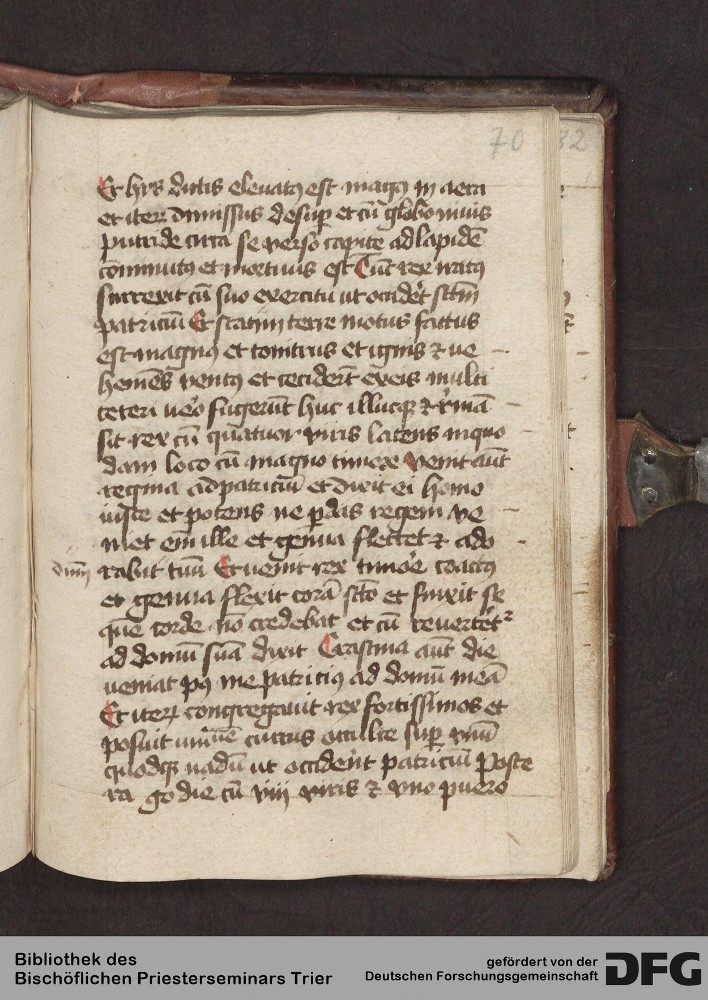 70 82
Et hys dictis eleuatus est magus in aera
et iterum dimissus desuper et cum globo niuis
putride circa se verso capite ad lapidem
comminutus et mortuus est Tunc rex iratus
surrexit cum suo exercitu ut occideret sanctum
patricium Et statim terre motus factus
est magnus et tonitrus et ignis et ve
hemens ventus et ceciderunt ex eis multi
ceteri uero fugerunt huc illucque et
sit rex cum quatuor viris latens in quo
dam loco cum magno timore venit autem
regina ad patricium et dixit ei homo
iuste et potens ne perdas regem ve
niet enim ille et genua flectet et ado
rabit tuum Et uenit rex timore coactus
et genua flexit coram sancto et finxit se
corde non credebat et cum reuerteretur
ad domum suam dixit Crastina autem die
ueniat post me patricius ad domum meam
Et iterum congregauit rex fortissimos et
posuit currus occulte super vnum
quodque uadum ut occiderent patricium Poste
ra ergo die cum viii viris et vno puero
Bibliothek des
Bischöflichen Priesterseminars Trier
gefördert von der
Deutschen Forschungsgemeinschaft
DFG